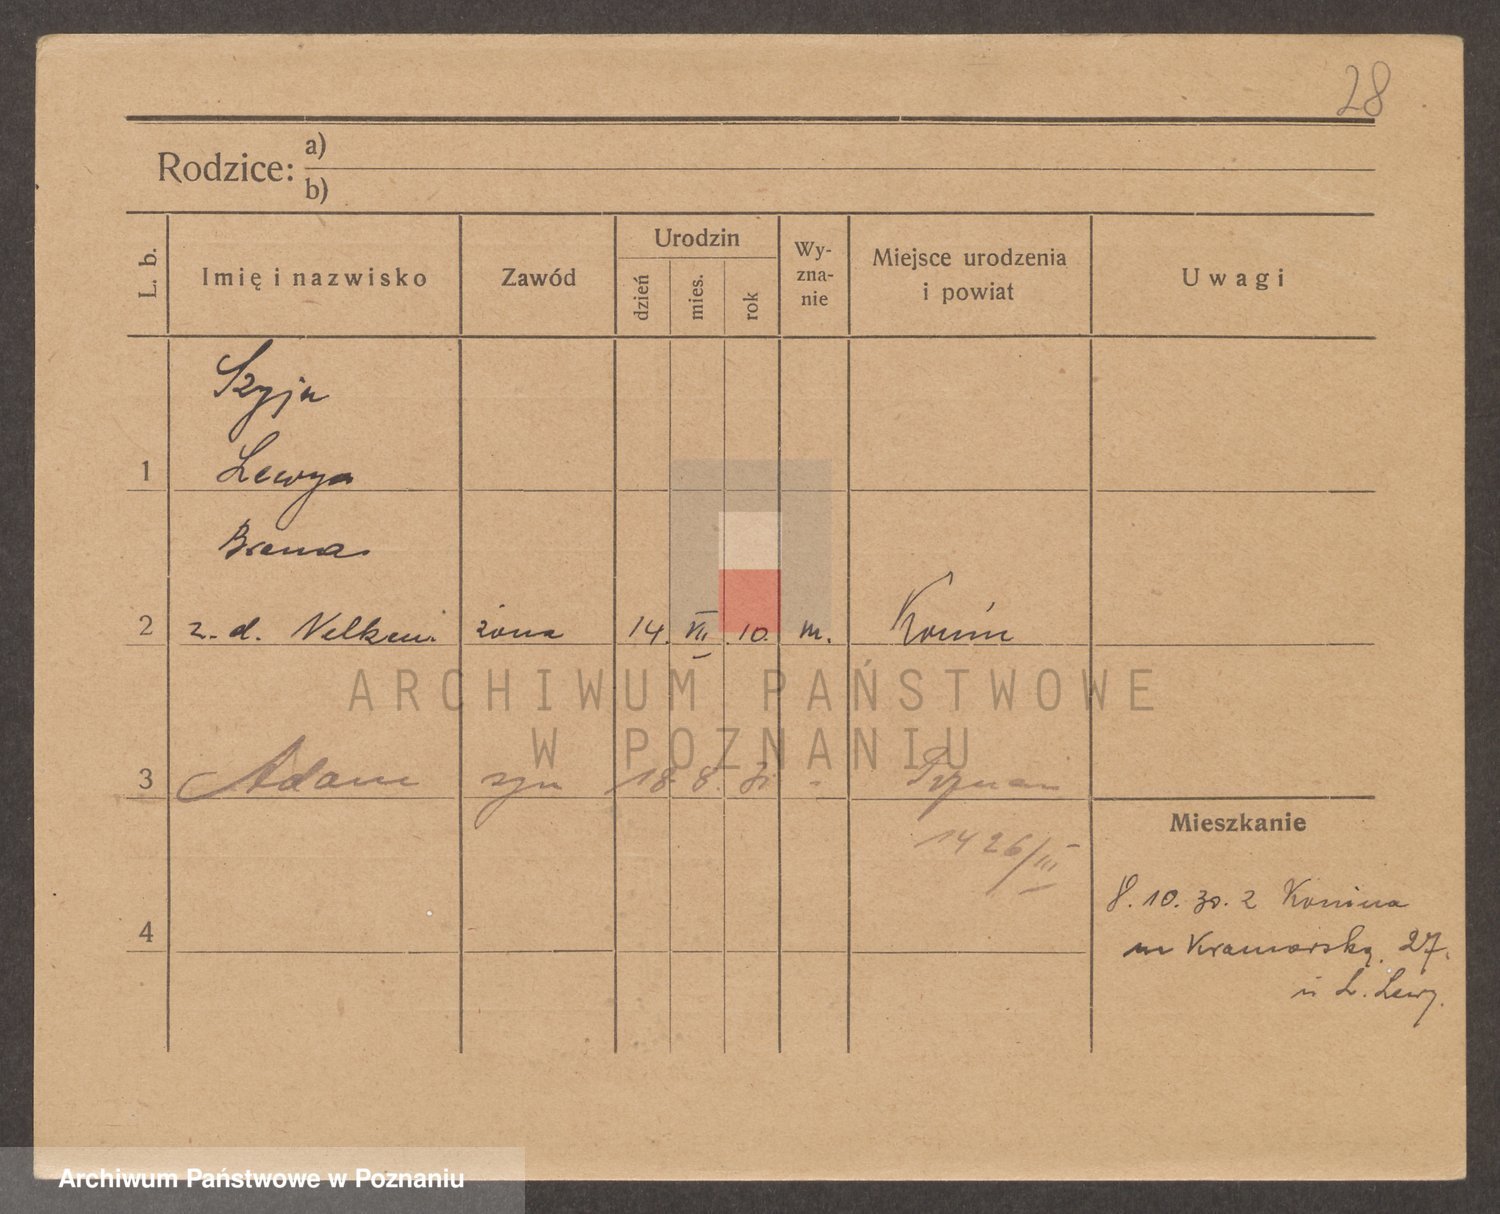 28
Rodzice: a)
b)
L. b. Imię i nazwisko Zawód Urodzin dzień mies. rok Wyznanie Miejsce urodzenia i powiat Uwagi
Szyja
1 Lewy
Brena
2 z. d. Nelken żona 14. VII. 10. m. Konin
ARCHIWUM PAŃSTWOWE
W POZNANIU
3 Adam syn 18. 8. Poznań
Mieszkanie
1426/III
8. 10. 30. z Konina
4
Kramarska 27.
u L. Lewy.
Archiwum Państwowe w Poznaniu